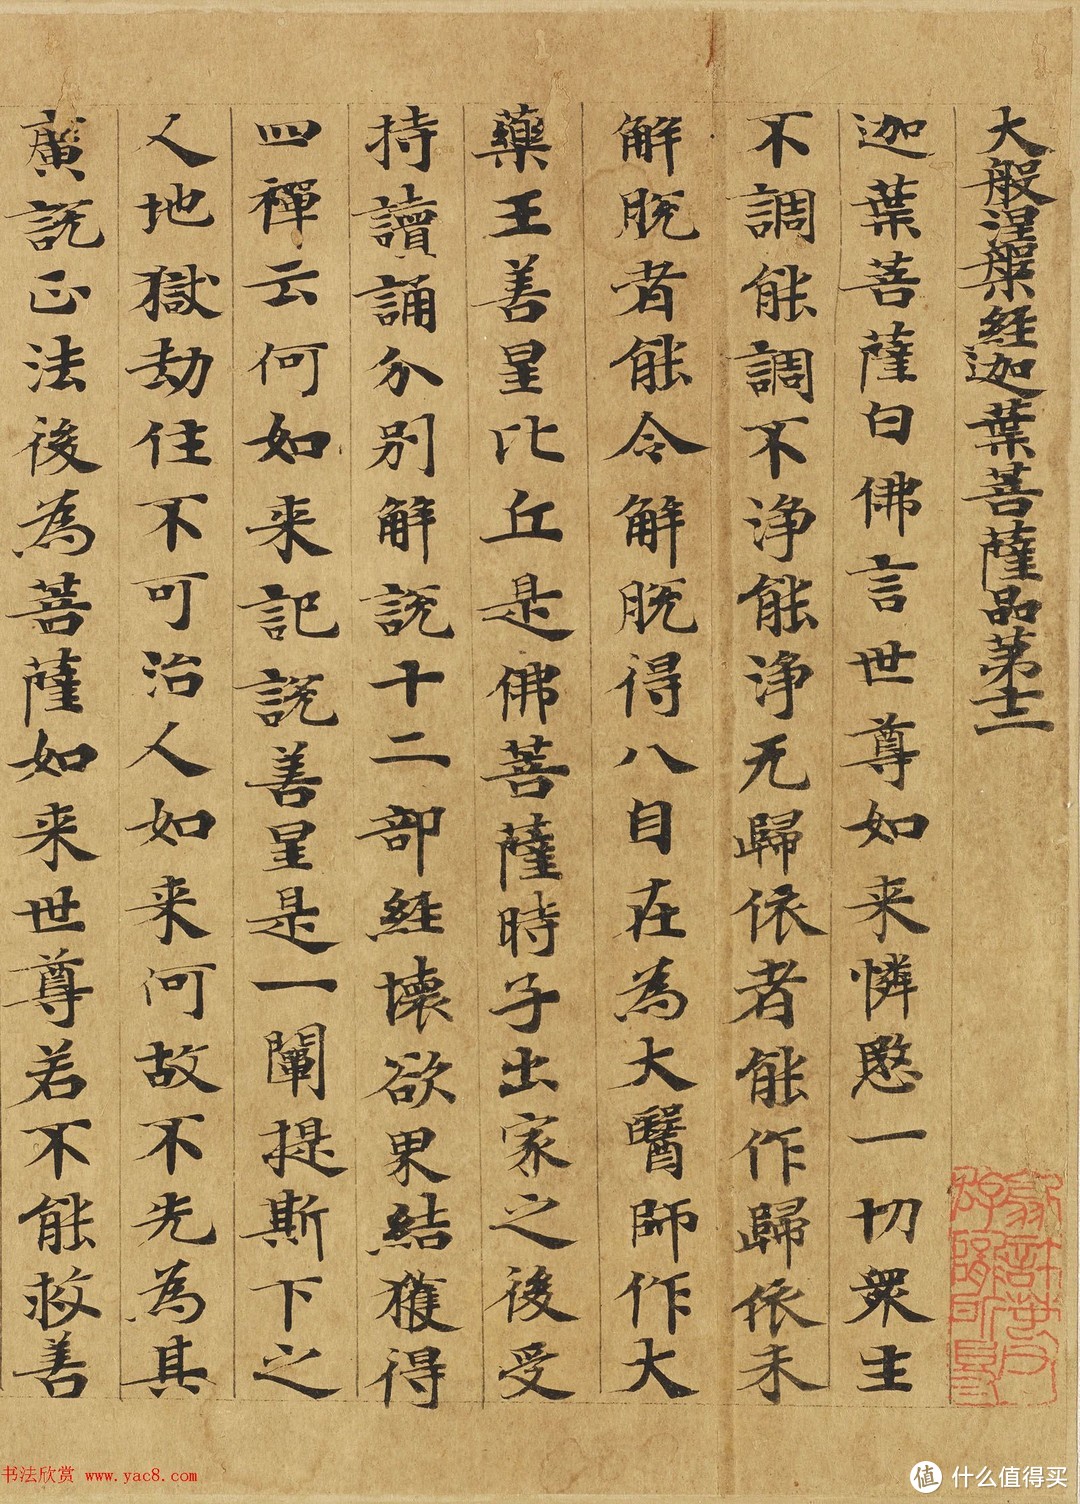 大般涅槃經迦葉菩薩品第十二
迦葉菩薩白佛言世尊如来憐愍一切眾生
不調能調不淨能淨无歸依者能作歸依未
解脫者能令解脫得八自在為大醫師作大
藥王善星比丘是佛菩薩時子出家之後受
持讀誦分別解說十二部經懷欲界結獲得
四禪云何如来記說善星是一闡提斯下之
人地獄劫住不可治人如来何故不先為其
廣說正法後為菩薩如来世尊若不能救善
书法欣赏 www.yac8.com
值 什么值得买